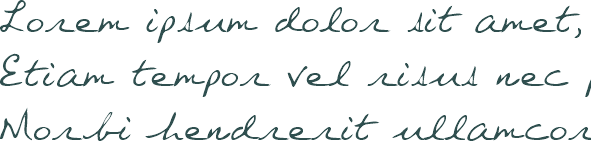 Lorem ipsum dolor sit amet,
Etiam tempor vel risus nec
Morbi hendrerit ullamcor